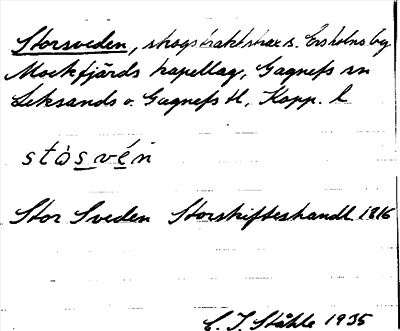 Storsveden, skogstrakt strax s. Ersholns bg
Mockfjärds kapellag, Gagnefs sn
Leksands o. Gagnefs tl, Kopp. l
stòsvén
Stor Sveden Storskifteshandl. 1816
E. J. Ståhle 1935